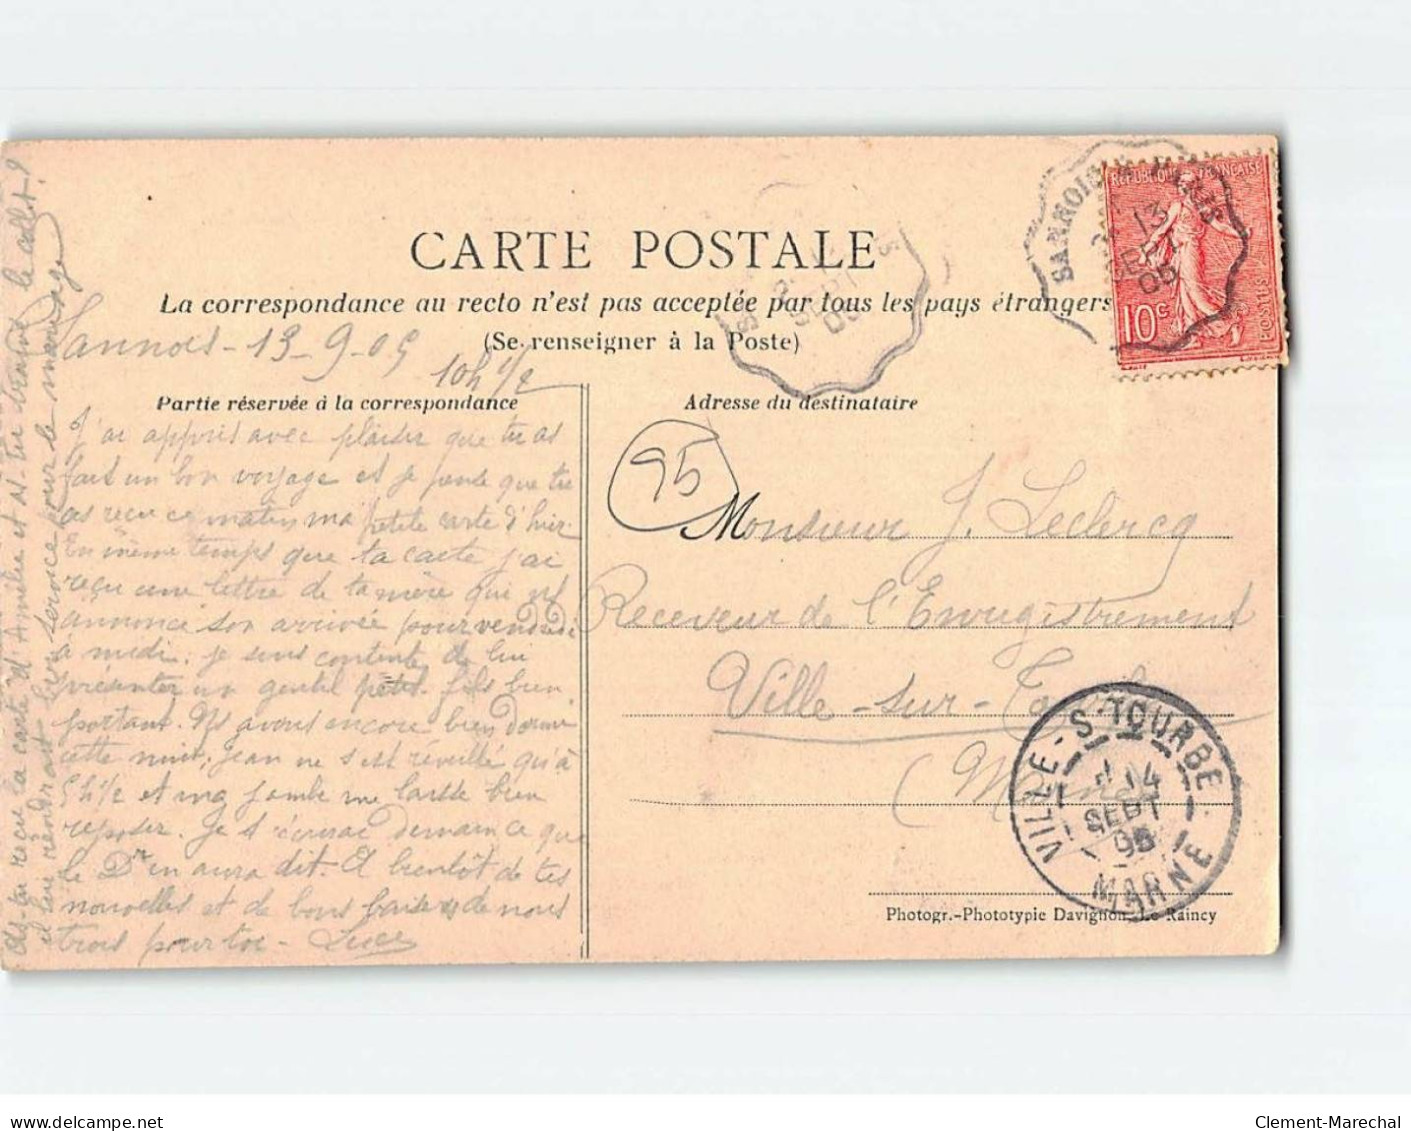 CARTE POSTALE
La correspondance au recto n'est pas acceptée par tous les pays étrangers
(Se renseigner à la Poste)
Sannois - 13 - 9 - 05
10h 1/2
Partie réservée à la correspondance
Adresse du destinataire
J'ai appris avec plaisir que tu as
fait un bon voyage et je pense que tu
as reçu ce matin ma petite carte d'hier.
En même temps que ta carte j'ai
reçu une lettre de ta mère qui
annonce son arrivée pour vendredi
à midi; je suis contente de lui
présenter un gentil petit fils bien
portant. Ns avons encore bien dormi
cette nuit, Jean ne s'est réveillé qu'à
5h1/2 et ma jambe me laisse bien
reposer. Je t'écrirai demain ce que
le Dr m'aura dit. A bientôt de tes
nouvelles et de bons baisers de nous
trois pour toi -
As-tu reçu la carte d'Amélie et
il lui rendrait bien service pour le mariage
95
Monsieur J. Leclercq
Receveur de l'Enregistrement
Ville-sur-Tourbe
(Marne)
Photogr.-Phototypie Davignon, Le Raincy
REPUBLIQUE FRANÇAISE
10c
POSTES
SANNOIS A PARIS
13
SEPT
05
SEPT
05
VILLE-S-TOURBE
14
SEPT
05
MARNE
delcampe.net
Clement-Marechal